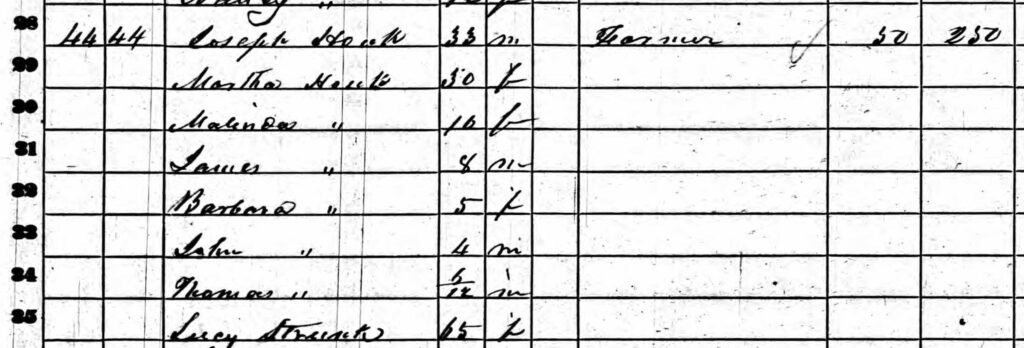 28 44 44 Joseph Houk 33 m Farmer 50 250
29 Martha Houk 30 f
30 Malinda " 10 f
31 James " 8 m
32 Barbara " 5 f
33 John " 4 m
34 Thomas " 6/12 m
35 Lucy Strunk 65 f